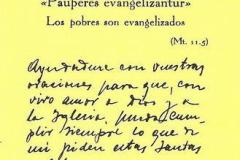 «Pauperes evangelizantur»
Los pobres son evangelizados
(Mt. 11.5)
Ayudadme con vuestras
oraciones para que, con
vivo amor a Dios y a
la Iglesia, pueda cum-
plir siempre lo que de
mi piden estas santas